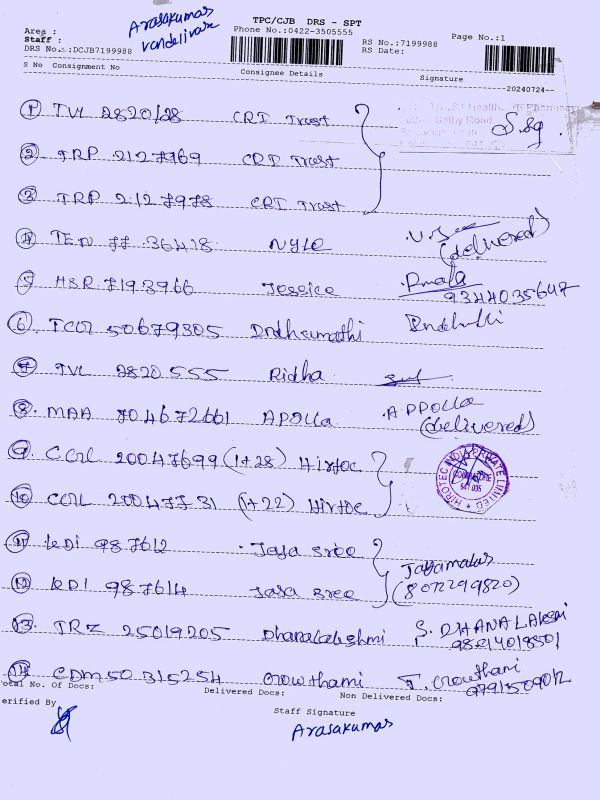 TPC/CJB DRS - SPT
Arasakumar
Area :
Staff :
Phone No.:0422-3505555
Page No.:1
RS No.:7199988
RS Date:
DRS No.:DCJB7199988
S No Consignment No Consignee Details Signature
20240724
1 TVL 2820128 CRI Trust
2 TRP 2127969 CRI Trust
3 TRP 2127978 CRI Trust
4 TEN 77 36418 NYLE (delivered)
5 HSR 7193966 Jessice
9344035647
6 TCOL 50679305
7 TVL 2820555 Ridha
8. MAA 704672661 APOlla APPOlla
(delivered)
9 CCOL 20047699 (1+28)
10 CCOL 20047731 (1+22)
11 KDI 987612 Jaya sree
12 KDI 987614 Jaya sree (8072299820)
13. TRZ 25019205 Dhanalakshmi S. DHANALAKSMI
14 CDM50 315254 Gowthami T. Gowthami
Total No. Of Docs: Delivered Docs: Non Delivered Docs:
Verified By
Staff Signature
Arasakumar